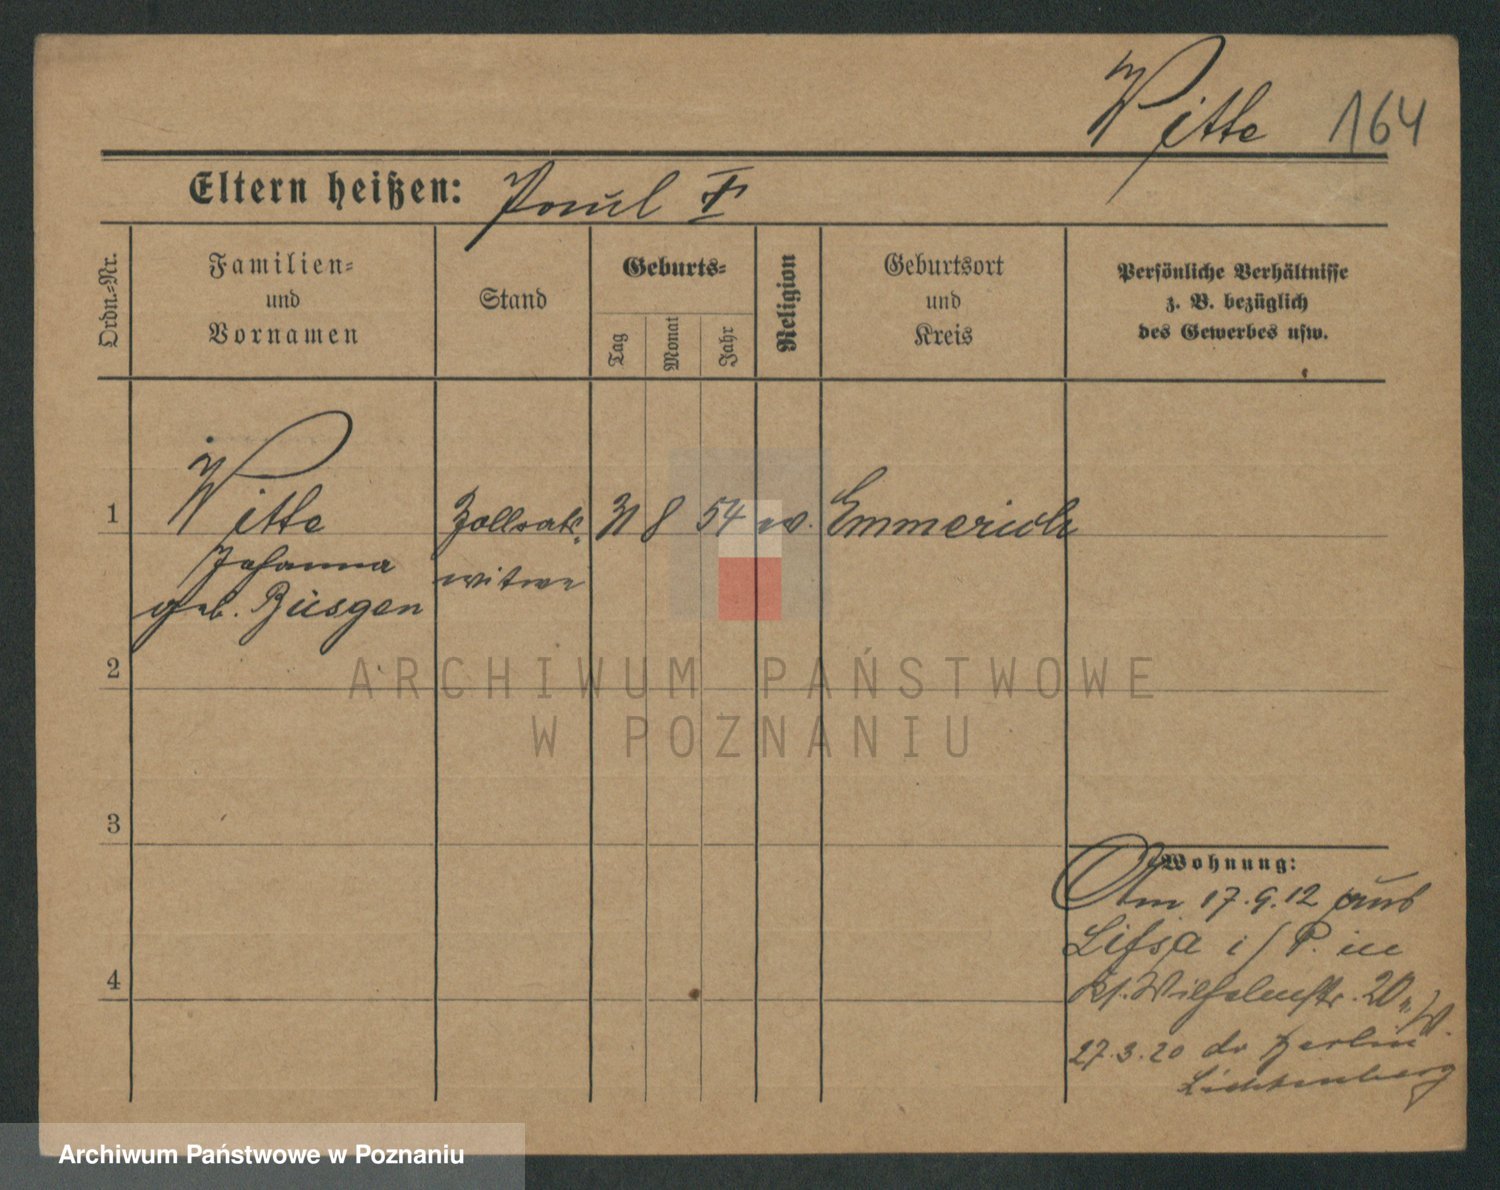 Witte 164
Eltern heißen: Paul I
Ordn.-Nr.
Familien-
und
Vornamen
Stand
Geburts-
Tag
Monat
Jahr
Religion
Geburtsort
und
Kreis
Persönliche Verhältnisse
z. B. bezüglich
des Gewerbes usw.
1 Witte Zollrats- 31 8 54 ev. Emmerich
Johanna witwe
geb. Büsgen
2
3
4
Wohnung:
Am 17.9.12 aus
Lissa i/P. in
Kl. Wilhelmstr. 20
27.3.20 Berlin
Lichtenberg
ARCHIWUM PAŃSTWOWE
W POZNANIU
Archiwum Państwowe w Poznaniu